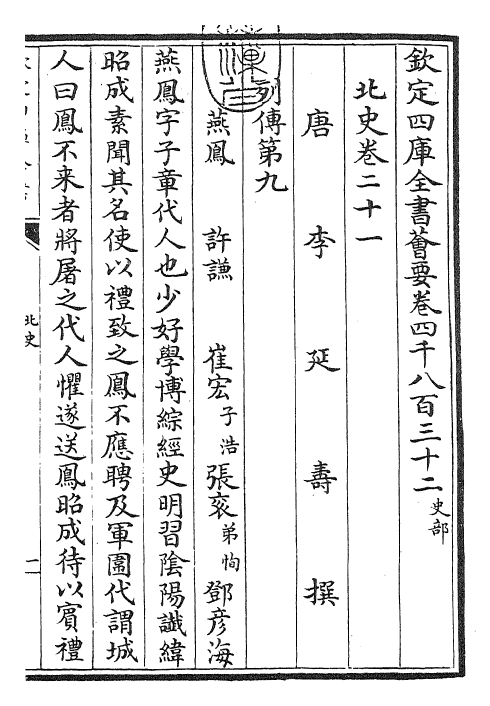 欽定四庫全書薈要卷四千八百三十二史部
北史卷二十一
唐李延壽撰
列傳第九
燕鳳 許謙 崔宏子浩 張衮弟恂 鄧彦海
燕鳳字子章代人也少好學博綜經史明習陰陽讖緯
昭成素聞其名使以禮致之鳳不應聘及軍圍代謂城
人曰鳳不来者將屠之代人懼遂送鳳昭成待以賓禮
北史